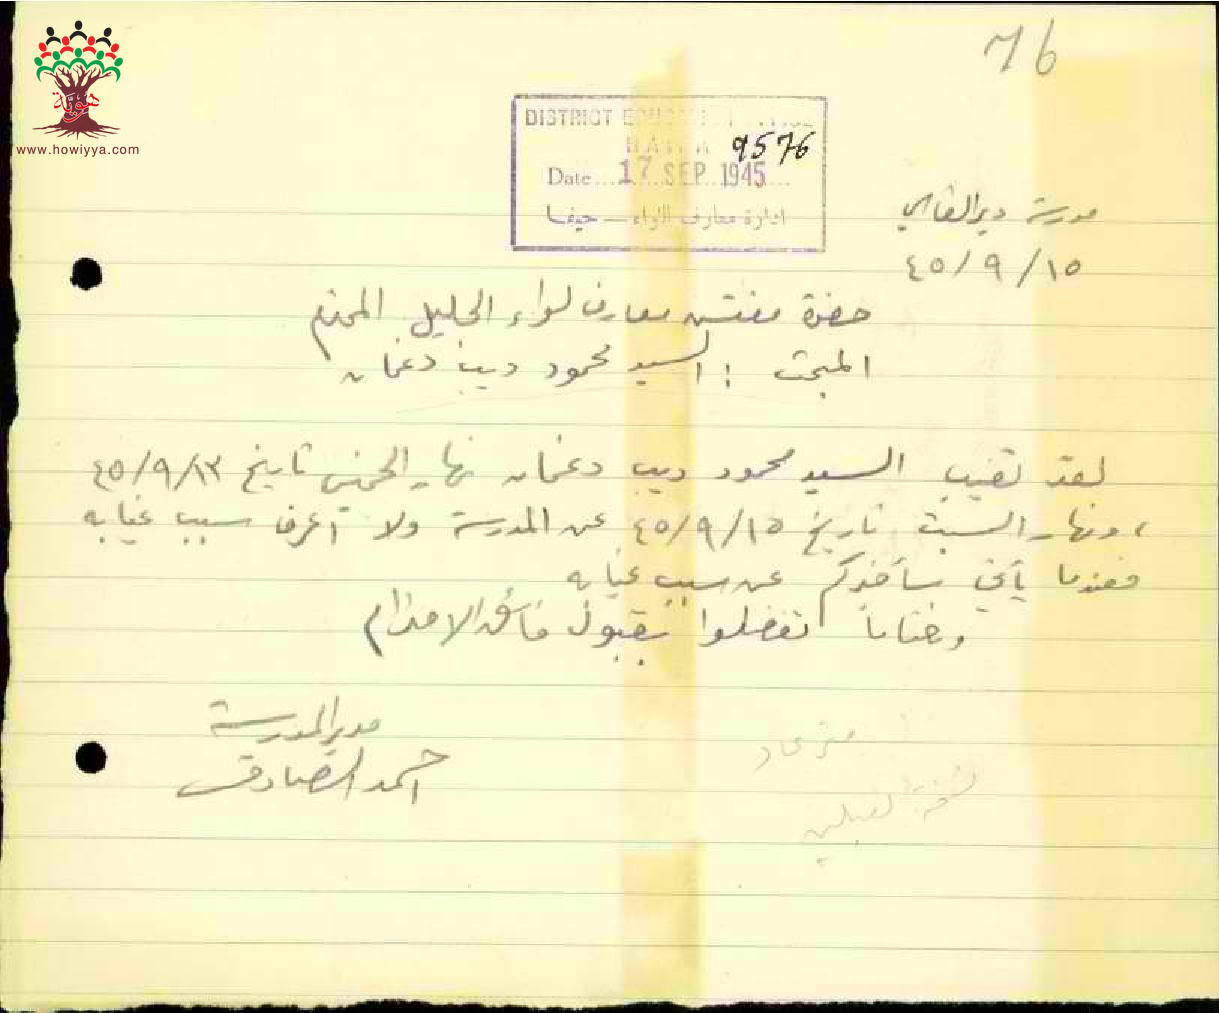 76
هوية
www.howiyya.com
DISTRICT
9576
Date ... 17 SEP 1945 ...
ادارة معارف اللواء — حيفا
مدرسة دير القاسي
١٥ / ٩ / ٤٥
حضرة مفتش معارف لواء الجليل المحترم
المبحث : السيد محمود ديب دغمان
لقد تغيب السيد محمود ديب دغمان نهار الخميس تاريخ ١٣/٩/٤٥
، ونهار السبت تاريخ ١٥/٩/٤٥ عن المدرسة ولا أعرف سبب غيابه
فعندما يأتي سأخبركم عن سبب غيابه
وختاماً تفضلوا بقبول فائق الاحترام
مدير المدرسة
احمد الصادق